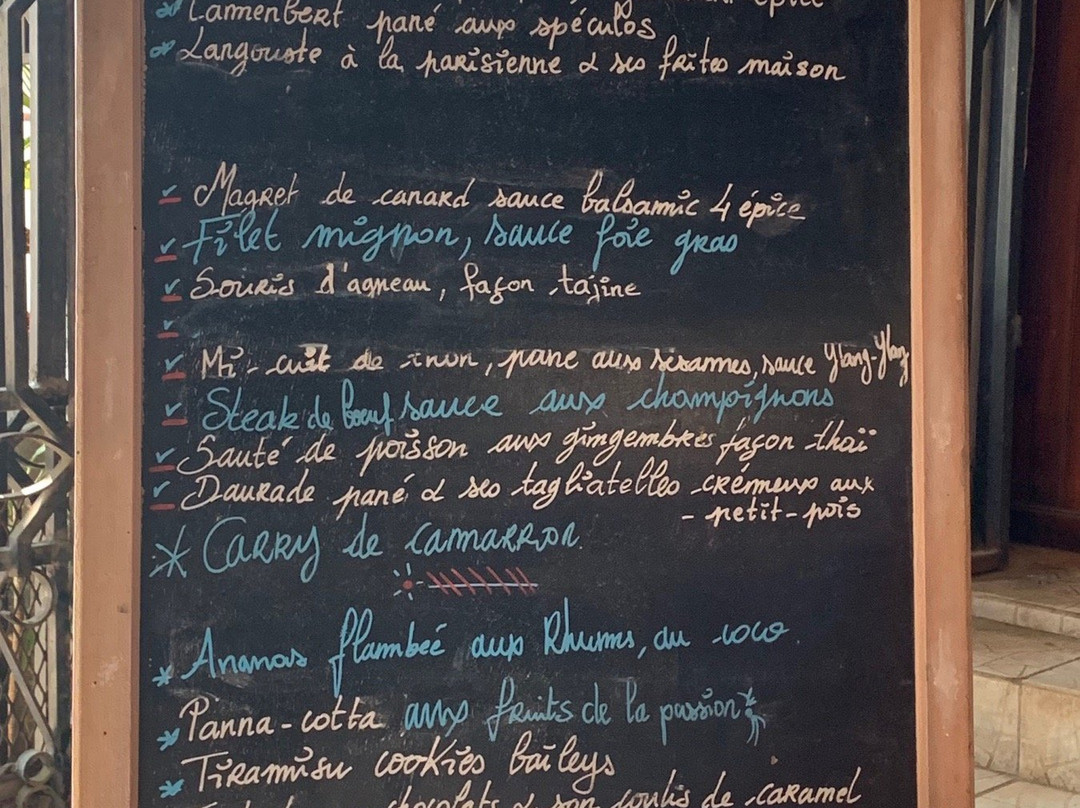 épice
Camenbert pané aux spéculos
Langouste à la parisienne & ses frites maison
Magret de canard sauce balsamic 4 épice
Filet mignon, sauce foie gras
Souris d'agneau, façon tajine
Mi-cuit de thon, pane aux sesammes, sauce Ylang-Ylang
Steak de boeuf sauce aux champignons
Sauté de poisson aux gingembres façon thaï
Daurade pané & ses tagliatelles crémeux aux
- petit-pois
Carry de camarron
Ananas flambeé aux Rhums, au coco.
Panna-cotta aux fruits de la passion
Tiramisu cookies baileys
chocolats & son coulis de caramel